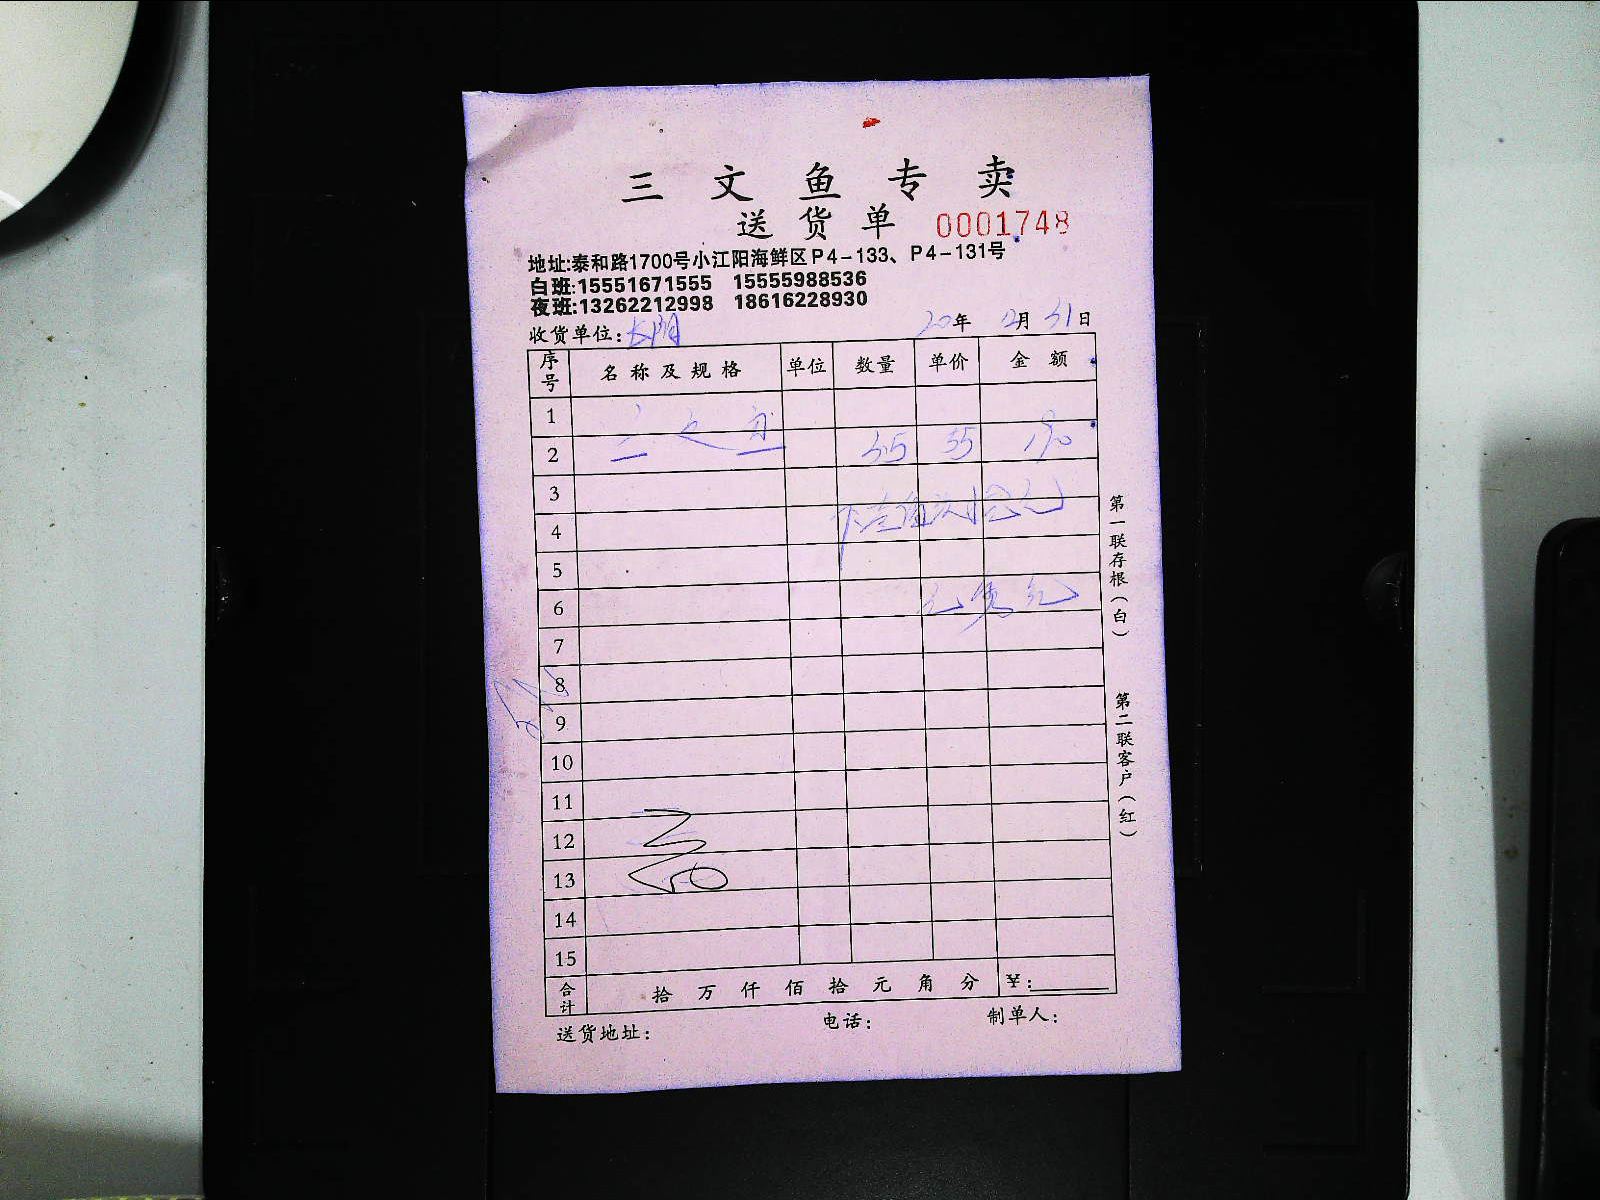 三文鱼专卖
送货单 0001748
地址:泰和路1700号小江阳海鲜区P4-133、P4-131号
白班:15551671555 15555988536
夜班:13262212998 18616228930
收货单位: 20年12月31日
序号 名称及规格 单位 数量 单价 金额
1
三文鱼
2 55
3
4
5
6
7
8
9
10
11
12
13
14
15
合计 拾 万 仟 佰 拾 元 角 分 ¥:
送货地址: 电话: 制单人:
第一联存根(白)
第二联客户(红)